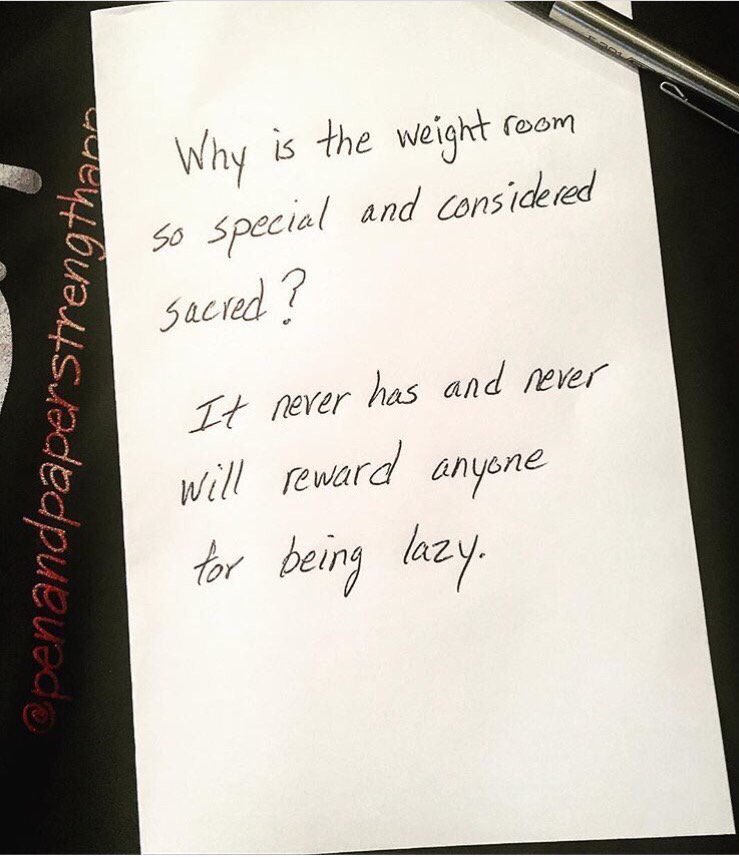 Why is the weight room
so special and considered
sacred?
It never has and never
will reward anyone
for being lazy.
@penandpaperstrengthapp